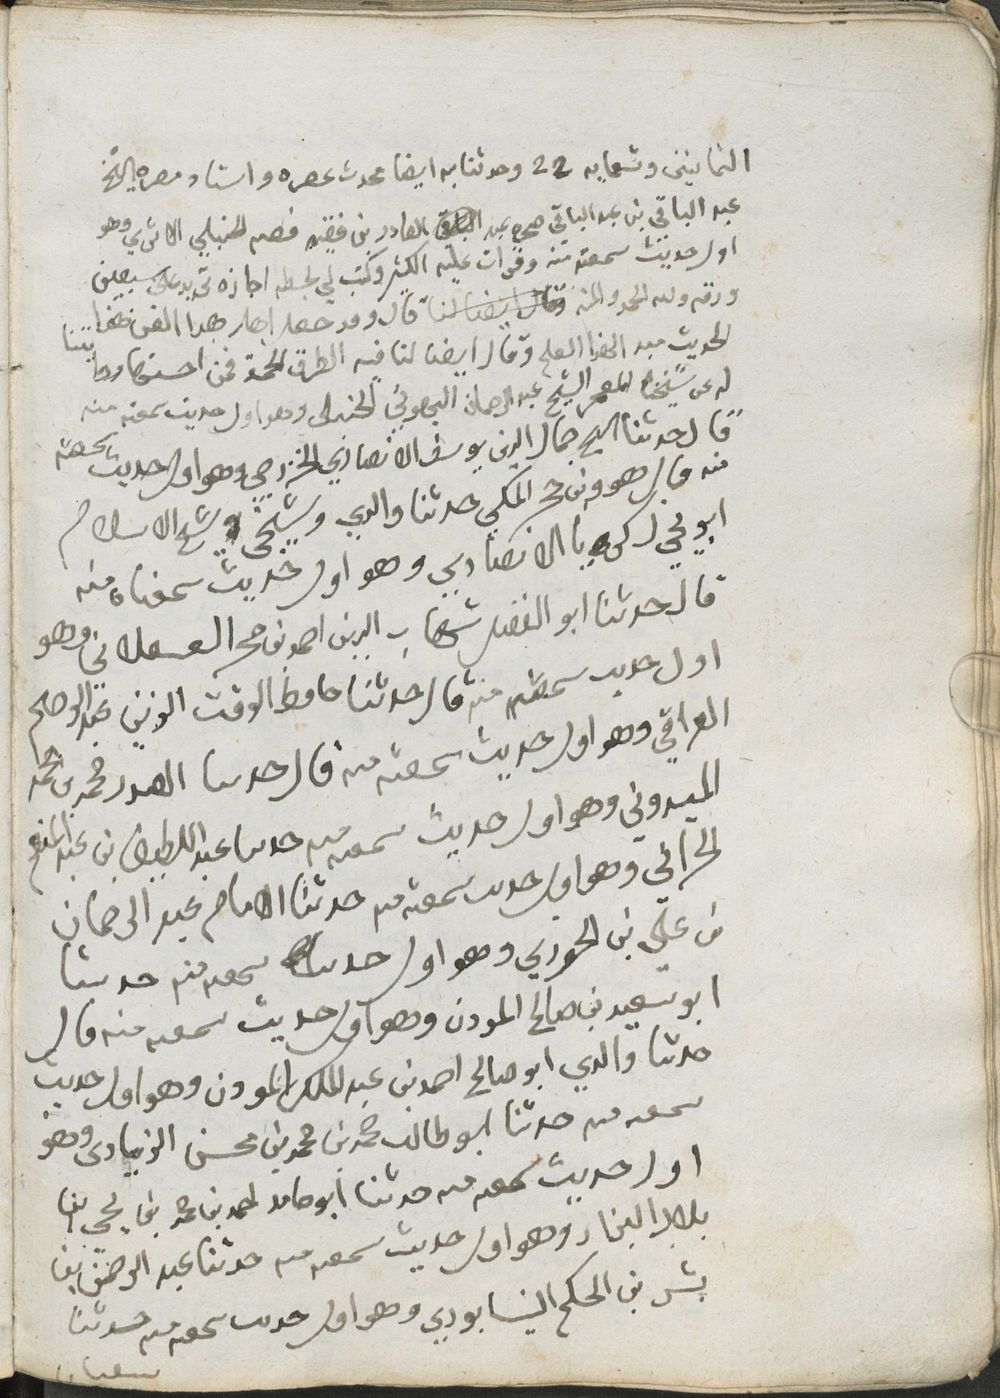 الثمانين وتسعمايه 22 وحدثنا به ايضا محدث عصره واستاد مصره الشيخ
عبد الباقي بن عبد الباقي صح عبد القادر بن فقيه فصه الحنبلي الاثري وهو
اول حديث سمعته منه وقرات عليه الكثير وكتب لي بخطه اجازه تزيد على سبعين
ورقه ولله الحمد والمنه وقال ايضا لنا قال وقد حصل لهذا الفن
الحديث وقال ايضا لنا فيه الطرق فمن احسنها
له عن شيخنا المعمر الشيخ عبد الرحمان البهوتي الحنبلي وهو اول حديث سمعته منه
قال حدثنا الشيخ جمال الدين يوسف الانصاري الخزرجي وهو اول حديث سمعته
منه قال هو وبن حجر المكي حدثنا والدي وشيخي وشيخ الاسلام
ابو يحي زكريا الانصاري وهو اول حديث سمعناه منه
قال حدثنا ابو الفضل شهاب الدين احمد بن حجر العسقلاني وهو
اول حديث سمعته منه قال حدثنا حافظ الوقت الزين عبد الرحيم
العراقي وهو اول حديث سمعته منه قال حدثنا الصدر محمد بن محمد
الميدوني وهو اول حديث سمعته منه حدثنا عبد اللطيف بن عبد المنعم
الحراني وهو اول حديث سمعته منه حدثنا الامام عبد الرحمان
بن علي بن الجوزي وهو اول حديث سمعته منه حدثنا
ابو سعيد بن صالح المودن وهو اول حديث سمعته منه قال
حدثنا والدي ابو صالح احمد بن عبد الملك المودن وهو اول حديث
سمعته منه حدثنا ابو طالب محمد بن محمد بن محسن الزيادي وهو
اول حديث سمعته منه حدثنا ابو حامد احمد بن محمد بن يحي بن
بلال البزار وهو اول حديث سمعته منه حدثنا عبد الرحمن بن
بشر بن الحكم النيسابوري وهو اول حديث سمعته منه حدثنا
سفيان